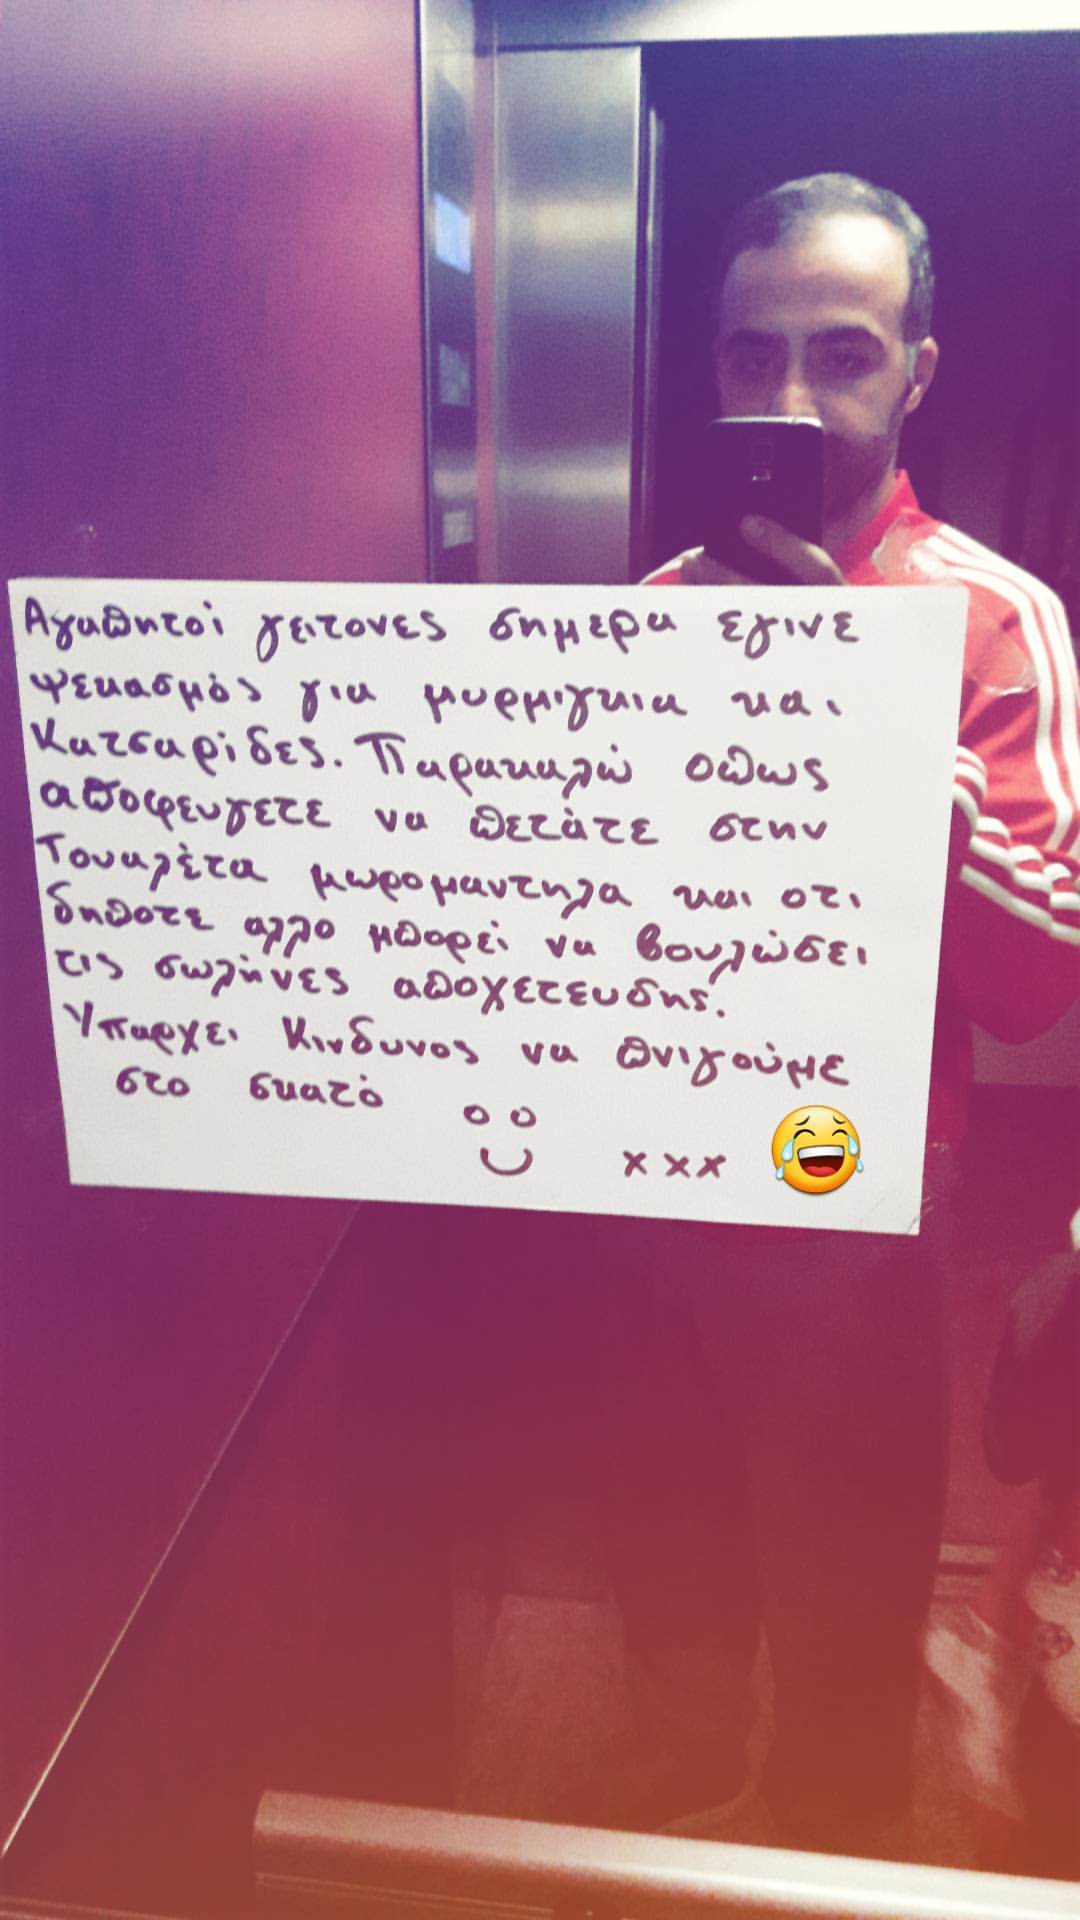 Αγαπητοί γειτονες σημερα εγινε
ψεκασμός για μυρμιγκια και
Κατσαρίδες. Παρακαλώ οπως
αποφευγετε να πετάτε στην
Τουαλέτα μωρομαντηλα και οτι
δηποτε αλλο μπορεί να βουλώσει
τις σωλήνες αποχετευσης.
Υπαρχει Κινδυνος να πνιγούμε
στο σκατό
xxx